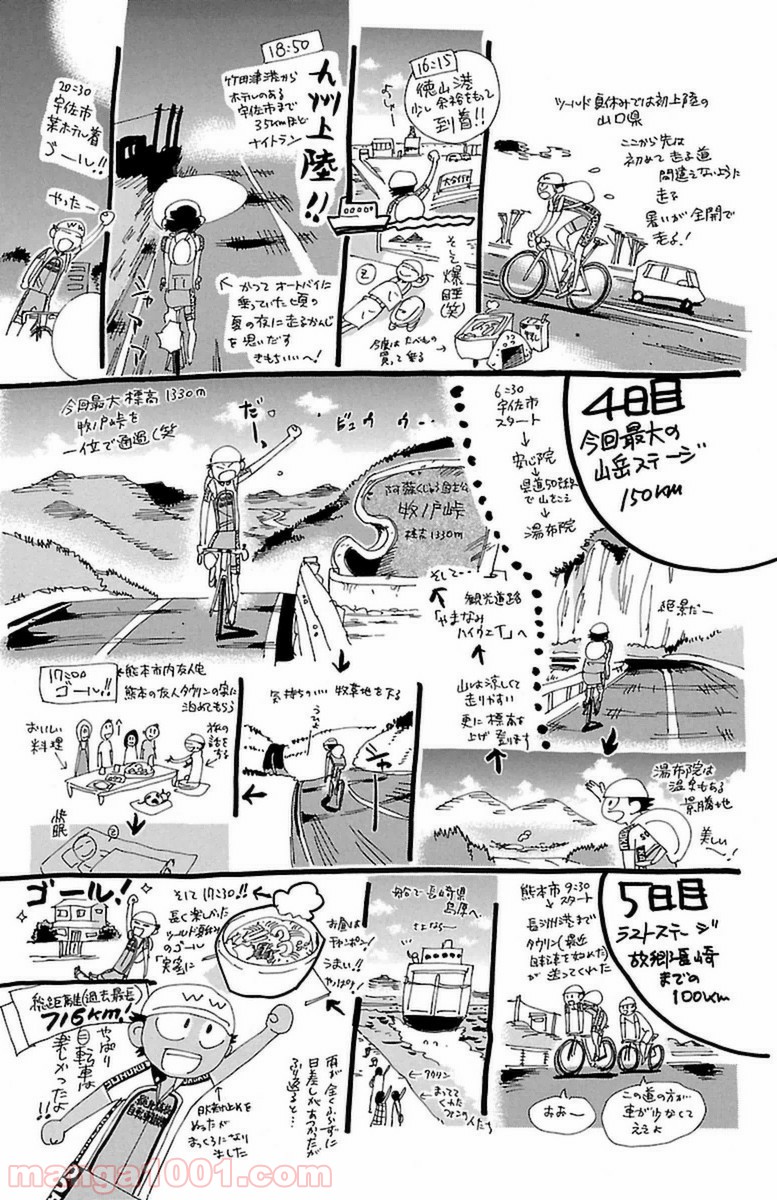 ツールド夏休みでは初上陸の
山口県
ここから先は
初めて走る道
間違えないように
走る
暑いが全開で
走る!
16:15
徳山港
少し余裕をもって
到着!!
よっしゃー
そして爆睡(笑)
Z
今度はたべもの
買って乗る
18:50
九州上陸!!
竹田津港から
ホテルのある
宇佐市まで
35kmほど
ナイトラン
かつてオートバイに
乗っていた頃の
夏の夜に走るかんじ
を思いだす
きもちいいへ!
シャアアア
20:30
宇佐市
某ホテル着
ゴール!!
やったー
4日目
今回最大の
山岳ステージ
150km
6:30
宇佐市
スタート
安心院
県道50号線
で山をこえ
湯布院
絶景だー
湯布院は
温泉もある
景勝地
美しい!
山は涼しくて
走りやすい
更に標高を
上げ登ります
観光道路
「やまなみ
ハイウェイ」へ
そして…
今回最大標高1330m
牧ノ戸峠を
一位で通過(笑
だーっ
ビュウゥー
阿蘇くじゅう国立公園
牧ノ戸峠
標高1330m
気持ちのいい牧草地を下る
シャ
17:00
ゴール!!
熊本市内友人宅
熊本の友人タウリンの家に
泊めてもらう
おいしい
料理
旅の
話を
する
快眠
Z
5日目
ラストステージ
故郷長崎
までの
100km
熊本市9:30
スタート
長洲港まで
タウリン(最近
自転車を始めた)
が送ってくれた
おおー
この道の方が
車が少なくて
ええよ
船で長崎県
島原へ
さよならー
タウリン
まってて
くれた
ファンの人たち
お昼は
チャンポン!
うまい!!
やっぱり!
雨が全くふらずに
日差しがあつかったが
ふり返ると…
そして17:30!!
長く楽しかった
ツールド夏休み
のゴール
「実家に
ゴール!
総距離(過去最長)
716km!
やっぱり
自転車は
楽しかったよ!!
W W
日焼け止めを
ぬったが
まっくろになり
ました
manga1001.com